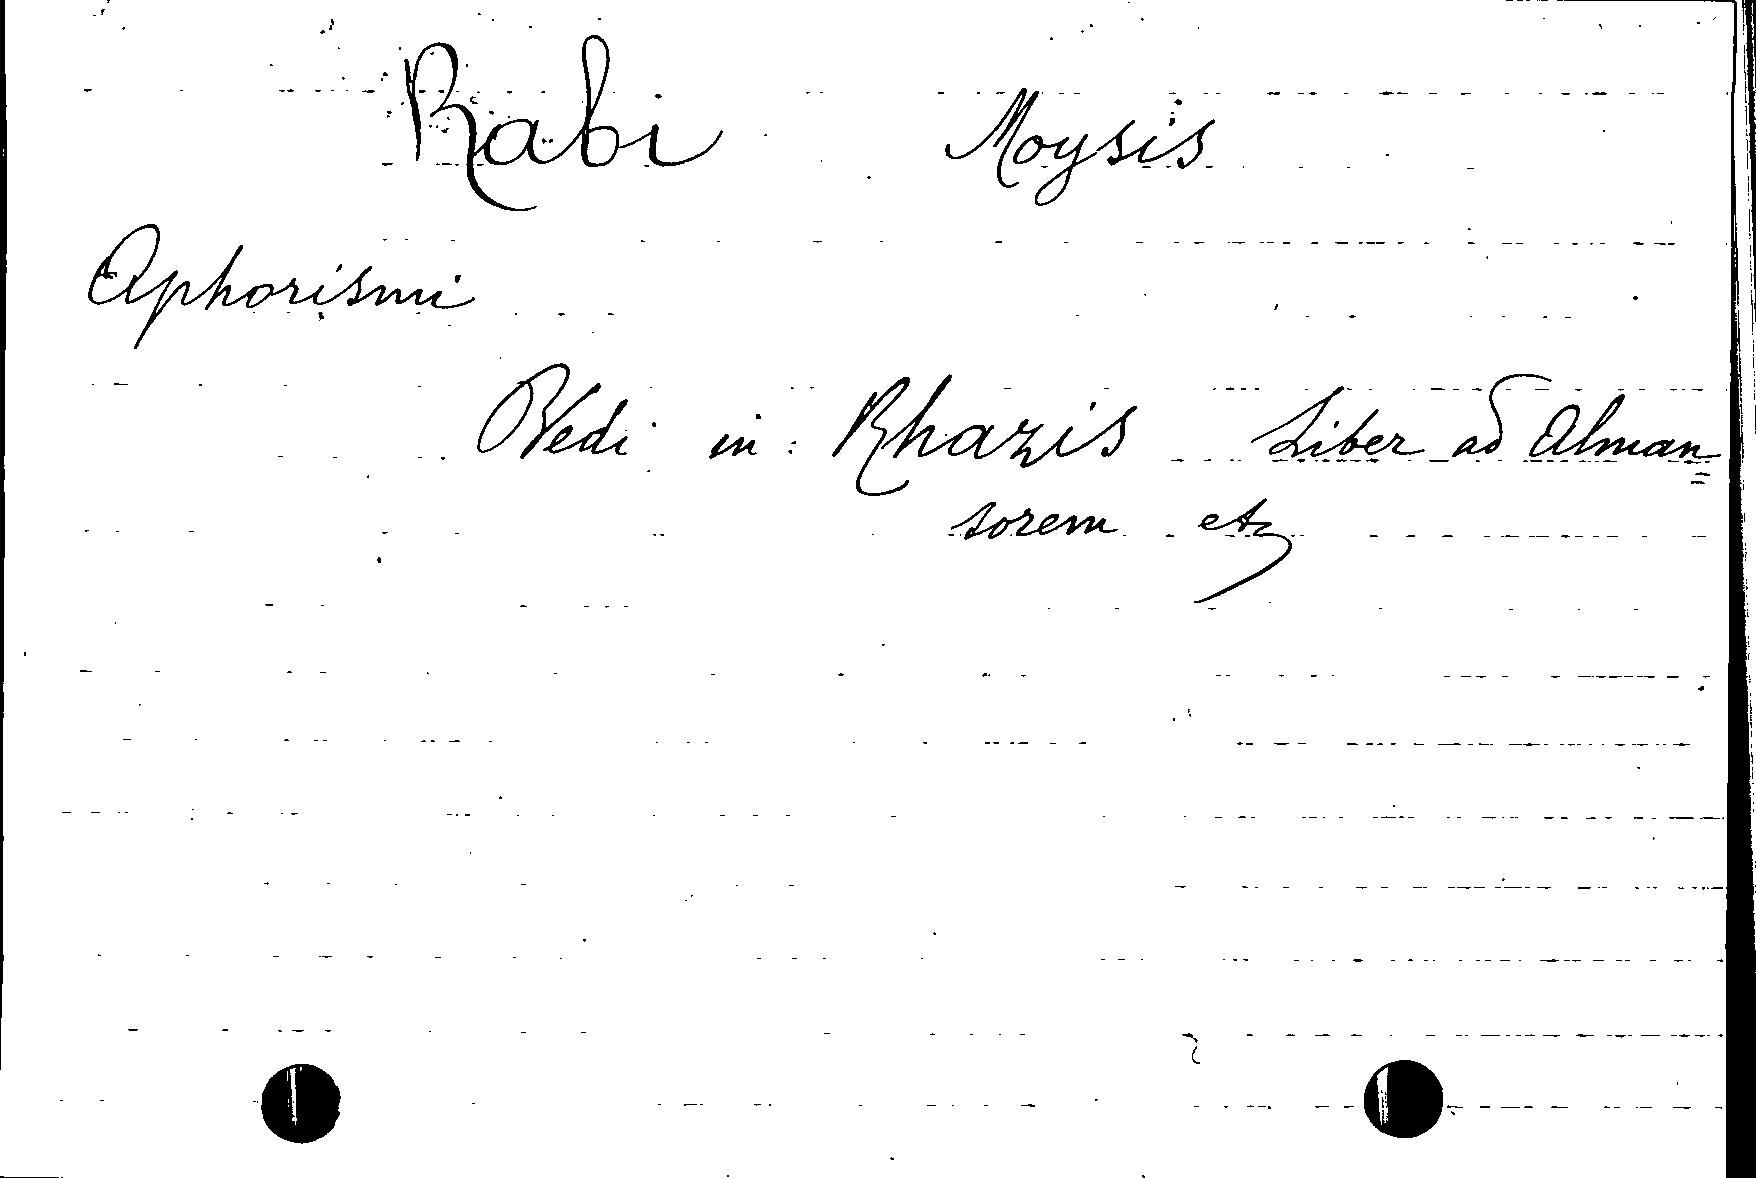 Rabi Moysis
Aphorismi
Vedi in: Rhazis Liber ad Alman=
sorem etc